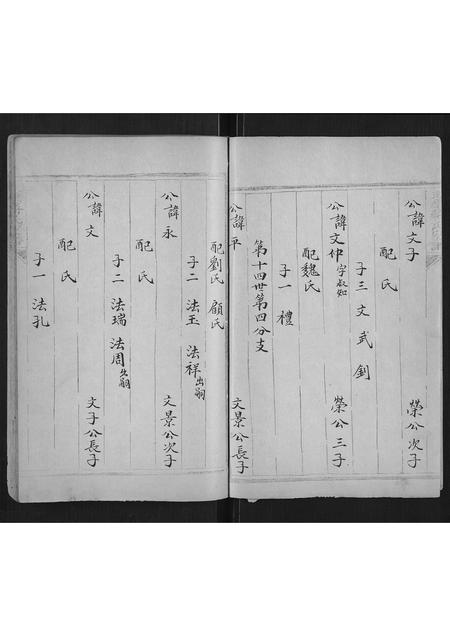 公諱文子 榮公次子
配 氏
子三 文 武 釗
公諱文仲字叔如 榮公三子
配魏氏
子一 禮
第十四世第四分支
公諱平 文景公長子
配劉氏 顧氏
子二 法玉 法祥出嗣
公諱永 文景公次子
配 氏
子二 法瑞 法周出嗣
公諱文 文子公長子
配 氏
子一 法孔